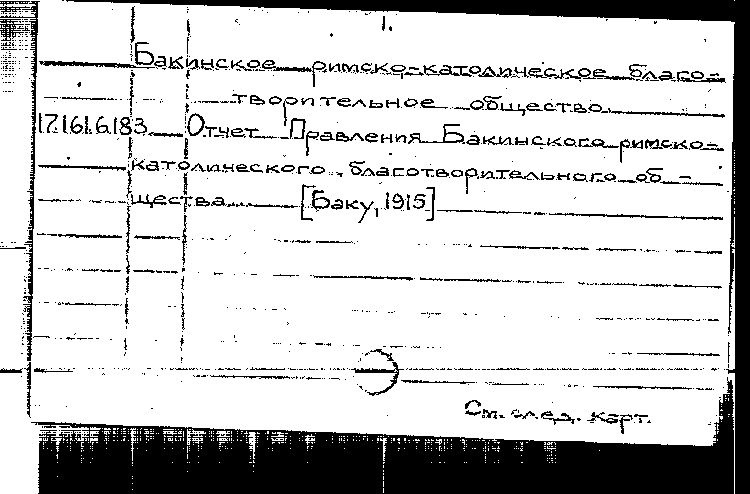 1.
Бакинское римско-католическое благо-
творительное общество.
17.161.6.183 Отчет Правления Бакинского римско-
католического благотворительного об-
щества [Баку, 1915]
См. след. карт.